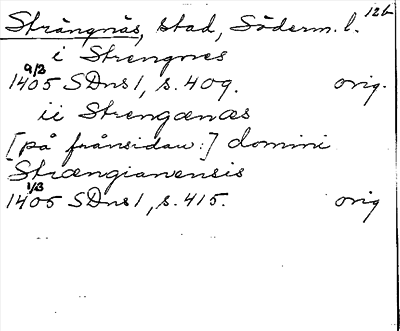 Strängnäs, stad, Söderm. l. 126
i Strengnes
1405 9/3 SDns 1, s. 409. orig.
ii Strengænæs
[på frånsidan:] domini
Strængianensis
1405 1/3 SDns 1, s. 415. orig